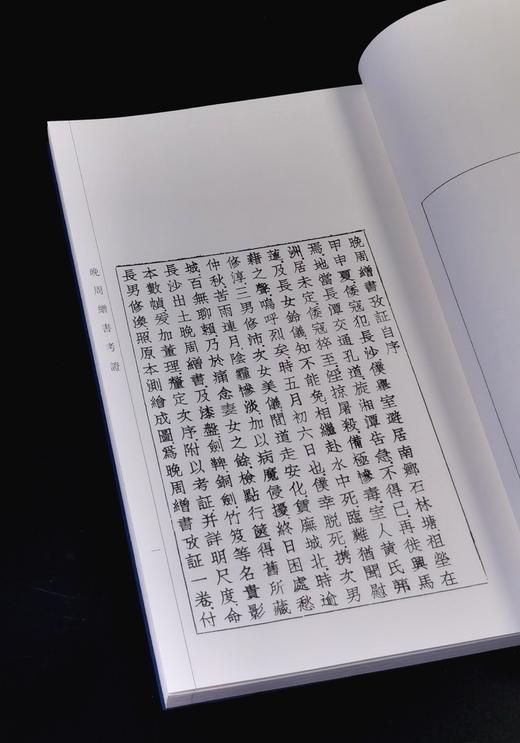 晚周繒書攷証自序
甲申夏倭寇犯長沙僕舉室避居南鄉石林塘祖塋在
焉地當長潭交通孔道旋湘潭告急不得已再徙興馬
洲居未定倭寇猝至淫掠屠殺備極慘毒室人黃氏茀
蓮及長女鈴儀知不能免相繼赴水中死臨難猶聞慰
藉之聲嗚呼烈矣時五月初六日也僕幸脫死攜次男
修淳三男修沛次女美儀間道走安化賃廡城北時逾
仲秋苦雨連月陰霾慘淡加以病魔侵擾終日困處愁
城百無聊賴乃於痛念妻女之餘檢點行篋得舊所藏
長沙出土晚周繒書及漆盤劍鞞銅劍竹笈等名貴影
本數幀爰加董理釐定次序附以考証并詳明尺度命
長男修渙照原本測繪成圖爲晚周繒書攷証一卷付
晚周繒書考證
一